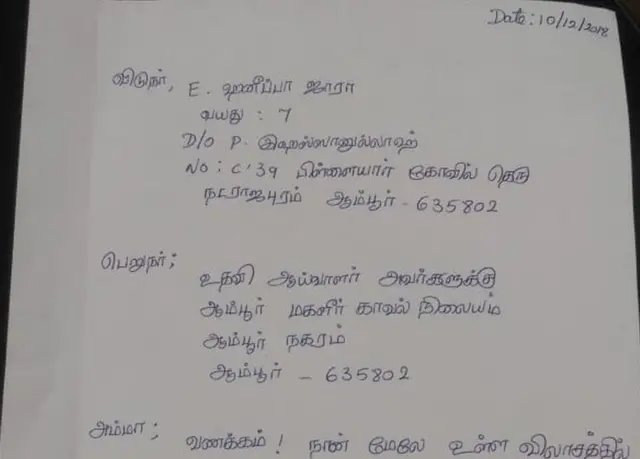 Date: 10/12/2018
விடுநர், E. ஹனீப்பா ஜாரா
வயது : 7
D/O P. இஹஸ்ஸானுல்லாஹ்
NO : C '39 பிள்ளையார் கோவில் தெரு
நடராஜபுரம் ஆம்பூர் - 635802
பெறுநர்;
உதவி ஆய்வாளர் அவர்களுக்கு
ஆம்பூர் மகளிர் காவல் நிலையம்
ஆம்பூர் நகரம்
ஆம்பூர் - 635802
அம்மா ;
வணக்கம் ! நான் மேலே உள்ள விலாசத்தில்